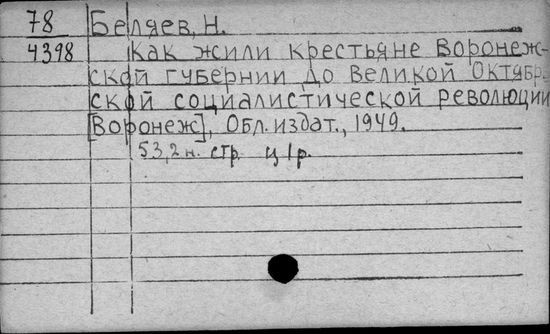 78 Беляев, Н.
4398 Как жили крестьяне Воронеж-
ской губернии до Великой Октябр.
ской социалистической революции
[Воронеж], Обл. издат., 1949.
53, 2 н. стр. ц 1 р.